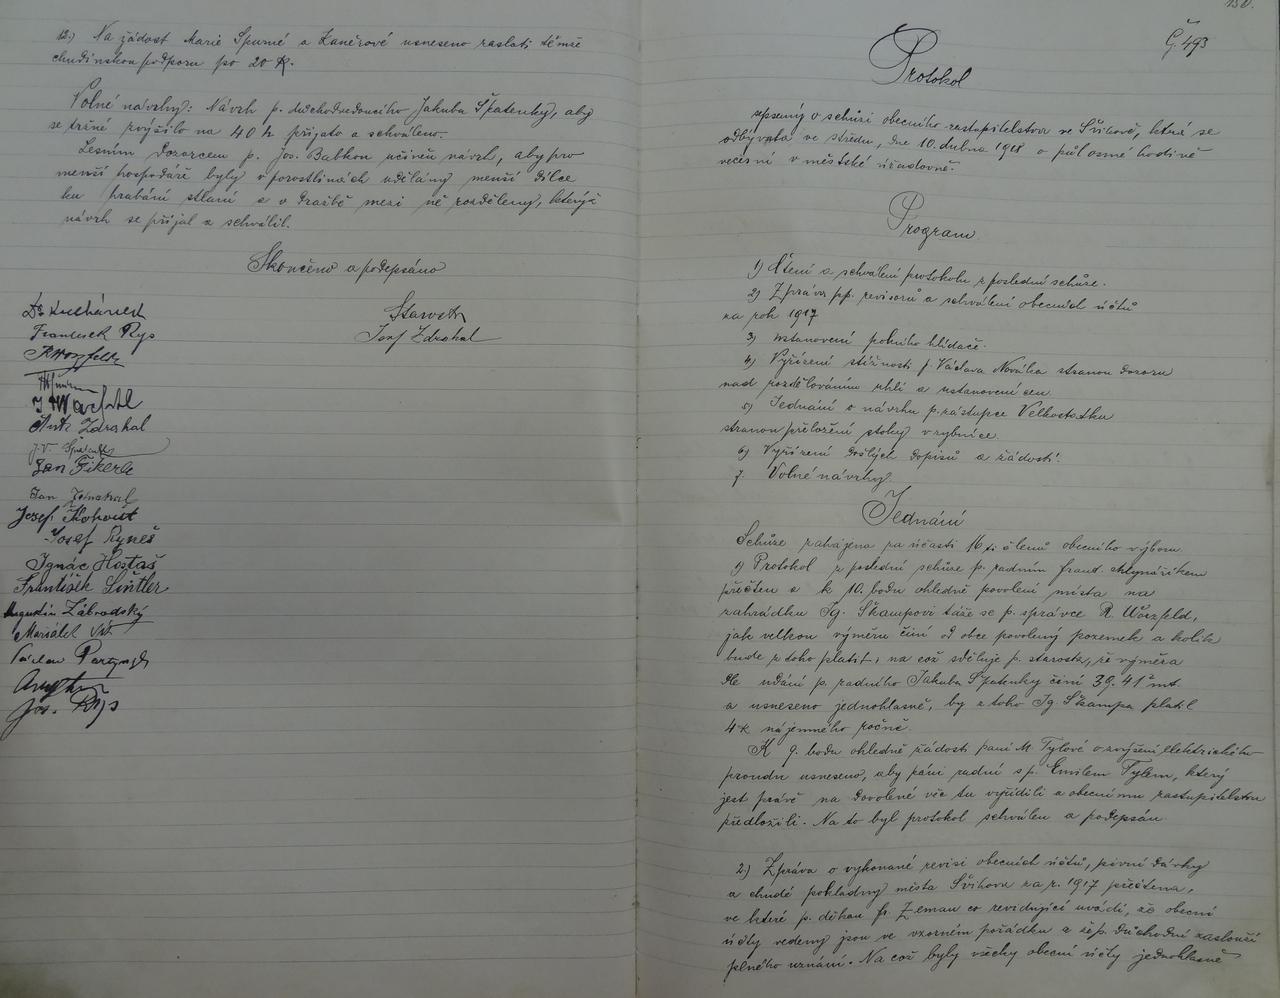 12.) Na žádost Marie Špurné a Zaněrové usneseno zaslati těmže
chudinskou podporu po 20 K.
Volné návrhy: Návrh p. důchodvedoucího Jakuba Špatenky, aby
se tržné zvýšilo na 40 h přijato a schváleno.
Lesním dozorcem p. Jos. Babkou učiněn návrh, aby pro
menší hospodáře byly v porostlinách udělány menší dílce
ku hrabání stlaní a v dražbě mezi ně rozděleny, kterýž
návrh se přijal a schválil.
Skončeno a podepsáno
Starosta
Josf Zdrahal
František Rys
J Wachtl
Ant. Zdrahal
J. V. Špatenka
Jan Fikerle
Jan Zdrahal
Josef Kohout
Josef Ryneš
Ignác Hostaš
František Šintler
Augustin Zábrodský
Mariálek
Václav
Jos. Rys
130.
Č. 493
Protokol
sepsaný o schůzi obecního zastupitelstva ve Švihově, která se
odbývala ve středu, dne 10. dubna 1918 o půl osmé hodině
večerní v městské účtovně.
Program
1) Čtení a schválení protokolu z poslední schůze.
2) Zpráva pp. revisorů a schválení obecních účtů
za rok 1917
3) Ustanovení polního hlídače.
4) Vyřízení stížnosti p. Václava Nováka stranou dozoru
nad rozdělováním uhlí a ustanovení cen.
5) Jednání o návrhu p. zástupce Velkostatku
stranou přeložení stoky v rybníce.
6) Vyřízení došlých dopisů a žádostí.
7. Volné návrhy.
Jednání
Schůze zahájena za účasti 16 ti členů obecního výboru.
1) Protokol z poslední schůze p. radním Frant. Mlynaříkem
přečten a k 10. bodu ohledně povolení místa na
zahrádku Ig. Škampovi táže se p. správce R. Wörzfeld,
jak velkou výměru činí od obce povolený pozemek a kolik
bude z toho platit, na což sděluje p. starosta, že výměra
dle udání p. radního Jakuba Špatenky činí 39.41² mt.
a usneseno jednohlasně, by z toho Ig. Škampa platil
4 K nájemného ročně.
K 9. bodu ohledně žádosti paní M. Tylové o zvýšení elektrického
proudu usneseno, aby páni radní s p. Emilem Tylem, který
jest právě na dovolené věc tu vyřídili a obecnímu zastupitelstvu
předložili. Na to byl protokol schválen a podepsán.
2) Zpráva o vykonané revisi obecních účtů, pivní dávky
a chudé pokladny města Švihova za r. 1917 přečtena,
ve které p. děkan Fr. Zeman co revidující uvádí, že obecní
účty vedeny jsou ve vzorném pořádku a že p. důchodní zaslouží
plného uznání. Na což byly všechy obecní účty jednohlasně